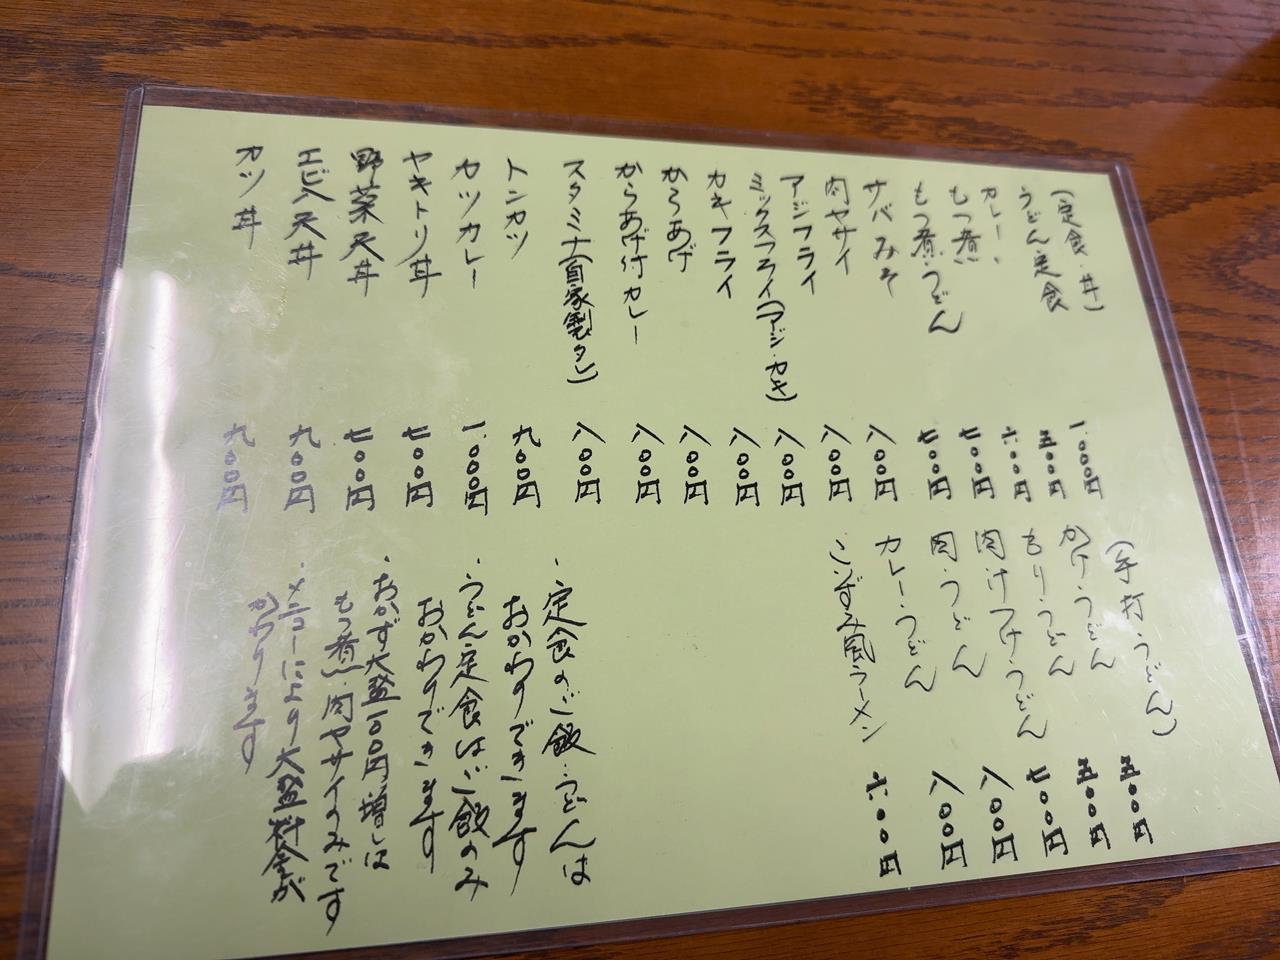 (定食・丼)
うどん定食 一.000円
カレー 五00円
もつ煮 六00円
もつ煮・うどん 七00円
サバみそ 七00円
肉ヤサイ 八00円
アジフライ 八00円
ミックスフライ(アジ・カキ) 八00円
カキフライ 八00円
からあげ 八00円
からあげ付カレー 八00円
スタミナ(自家製タレ) 八00円
トンカツ 九00円
カツカレー 一.000円
ヤキトリ丼 七00円
野菜天丼 七00円
エビ入天丼 九00円
カツ丼 九00円
(手打・うどん)
かけ・うどん 五00円
もり・うどん 五00円
肉汁つけ・うどん 七00円
肉・うどん 八00円
カレー・うどん 八00円
こいずみ風ラーメン 六00円
・定食のご飯・うどんは
おかわりできます
・うどん定食はご飯のみ
おかわりできます
・おかず大盛一00円増しは
もつ煮・肉ヤサイのみです
・メニューにより大盛料金が
かわります